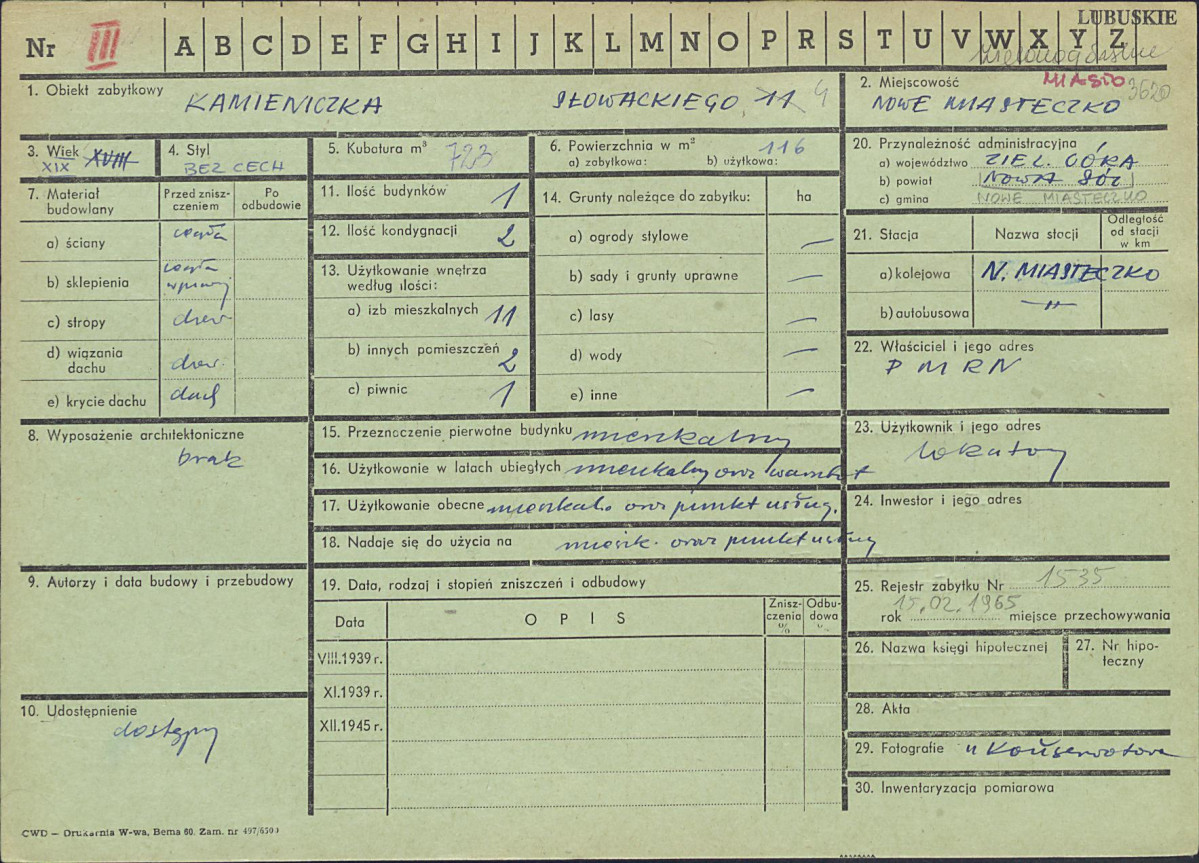 LUBUSKIE
Nr III A B C D E F G H I J K L M N O P R S T U V W X Y Z
MIASTO 3620
1. Obiekt zabytkowy
KAMIENICZKA SŁOWACKIEGO 11 9
2. Miejscowość
NOWE MIASTECZKO
3. Wiek XVIII
XIX
4. Styl
BEZ CECH
5. Kubatura m³ 723
6. Powierzchnia w m² 116
a) zabytkowa: b) użytkowa:
7. Materiał budowlany
Przed zniszczeniem
Po odbudowie
a) ściany cegła
b) sklepienia cegła
c) stropy drew
d) wiązania dachu drew.
e) krycie dachu dach
8. Wyposażenie architektoniczne
brak
9. Autorzy i data budowy i przebudowy
10. Udostępnienie
dostępny
11. Ilość budynków 1
12. Ilość kondygnacji 2
13. Użytkowanie wnętrza
według ilości:
a) izb mieszkalnych 11
b) innych pomieszczeń 2
c) piwnic 1
14. Grunty należące do zabytku: ha
a) ogrody stylowe —
b) sady i grunty uprawne —
c) lasy —
d) wody —
e) inne —
15. Przeznaczenie pierwotne budynku mieszkalny
16. Użytkowanie w latach ubiegłych mieszkalny oraz warsztat
17. Użytkowanie obecne mieszkal. oraz punkt usług.
18. Nadaje się do użycia na mieszk. oraz punkt usług
19. Data, rodzaj i stopień zniszczeń i odbudowy
Data O P I S Zniszczenia % Odbudowa %
VIII.1939 r.
XI.1939 r.
XII.1945 r.
20. Przynależność administracyjna
a) województwo ZIEL. GÓRA
b) powiat NOWA SÓL
c) gmina NOWE MIASTECZKO
21. Stacja Nazwa stacji Odległość od stacji w km
a) kolejowa N. MIASTECZKO
b) autobusowa —"—
22. Właściciel i jego adres
P M R N
23. Użytkownik i jego adres
lokatorzy
24. Inwestor i jego adres
25. Rejestr zabytku Nr 1535
15.02.1965
rok miejsce przechowywania
26. Nazwa księgi hipotecznej
27. Nr hipoteczny
28. Akta
29. Fotografie u Konserwatora
30. Inwentaryzacja pomiarowa
CWD — Drukarnia W-wa, Bema 60. Zam. nr 497/6500